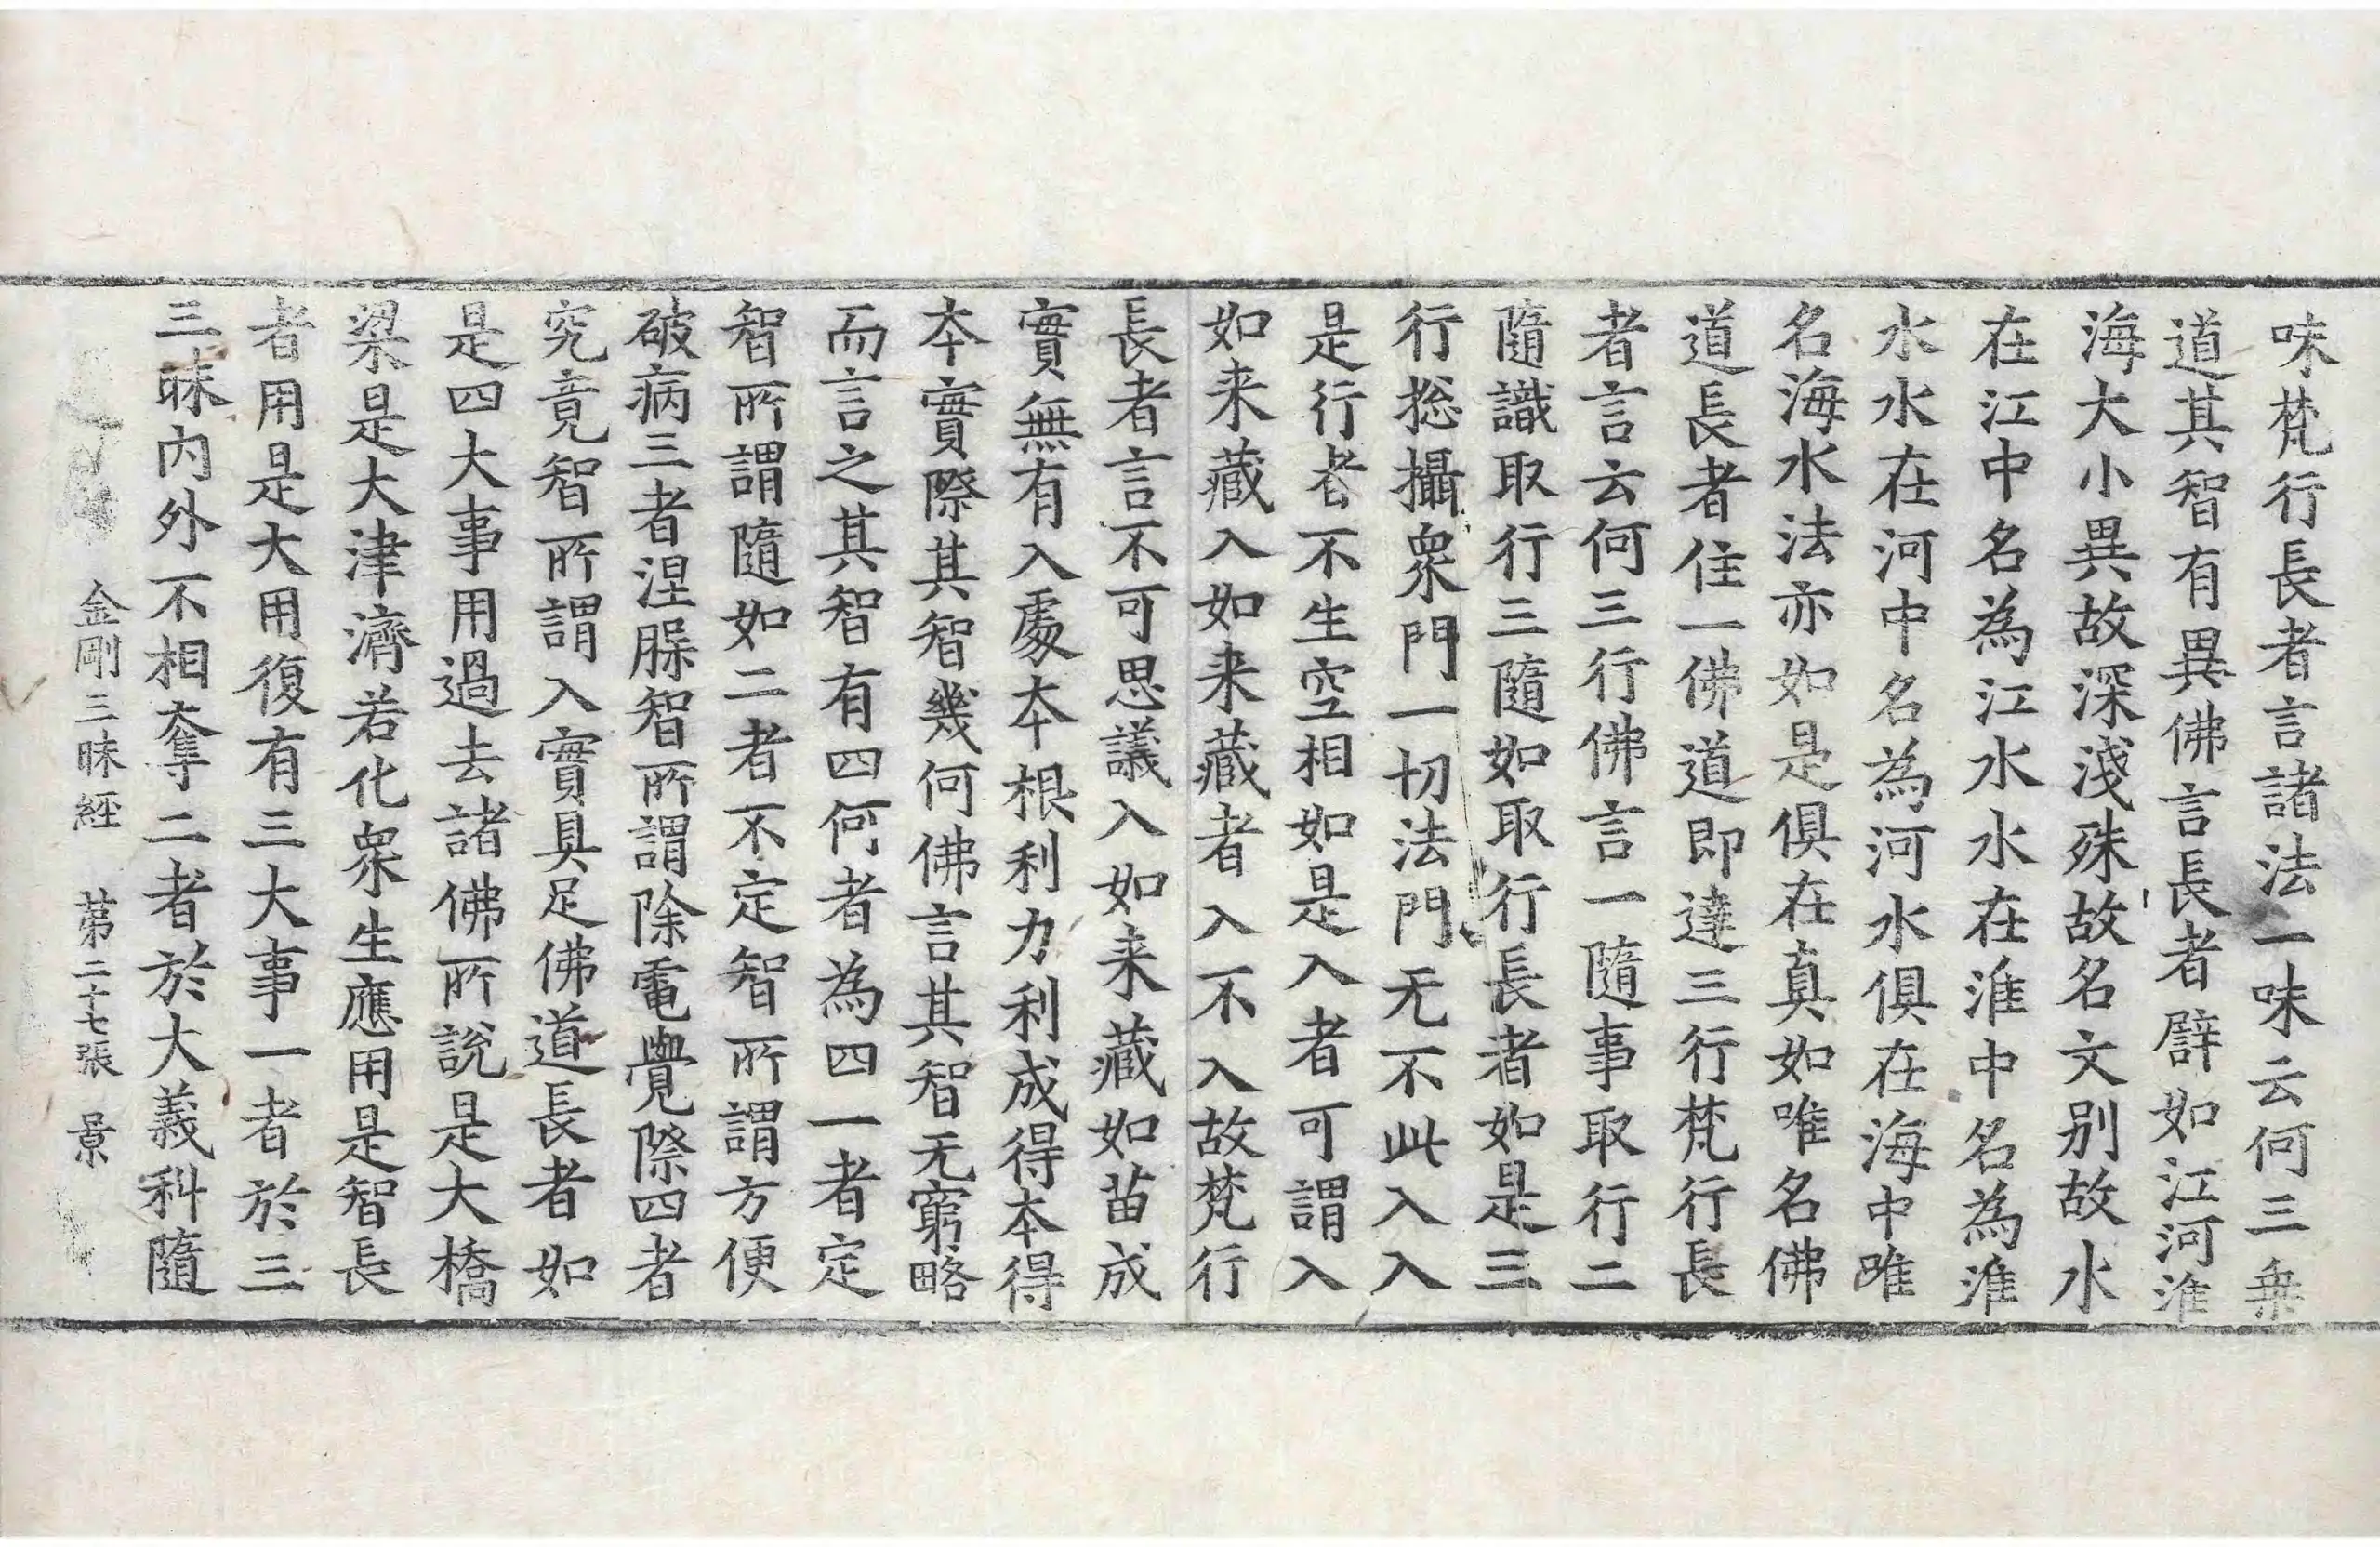 味梵行長者言諸法一味云何三乗
道其智有異佛言長者辟如江河淮
海大小異故深淺殊故名文别故水
在江中名為江水水在淮中名為淮
水水在河中名為河水俱在海中唯
名海水法亦如是俱在真如唯名佛
道長者住一佛道即達三行梵行長
者言云何三行佛言一隨事取行二
隨識取行三隨如取行長者如是三
行捴攝衆門一切法門无不此入入
是行者不生空相如是入者可謂入
如来藏入如来藏者入不入故梵行
長者言不可思議入如来藏如苗成
實無有入處本根利力利成得本得
本實際其智幾何佛言其智无窮略
而言之其智有四何者為四一者定
智所謂隨如二者不定智所謂方便
破病三者涅槃智所謂除電覺際四者
究竟智所謂入實具足佛道長者如
是四大事用過去諸佛所說是大橋
梁是大津濟若化衆生應用是智長
者用是大用復有三大事一者於三
三昧内外不相奪二者於大義科隨
金剛三昧經 第二十七張 景